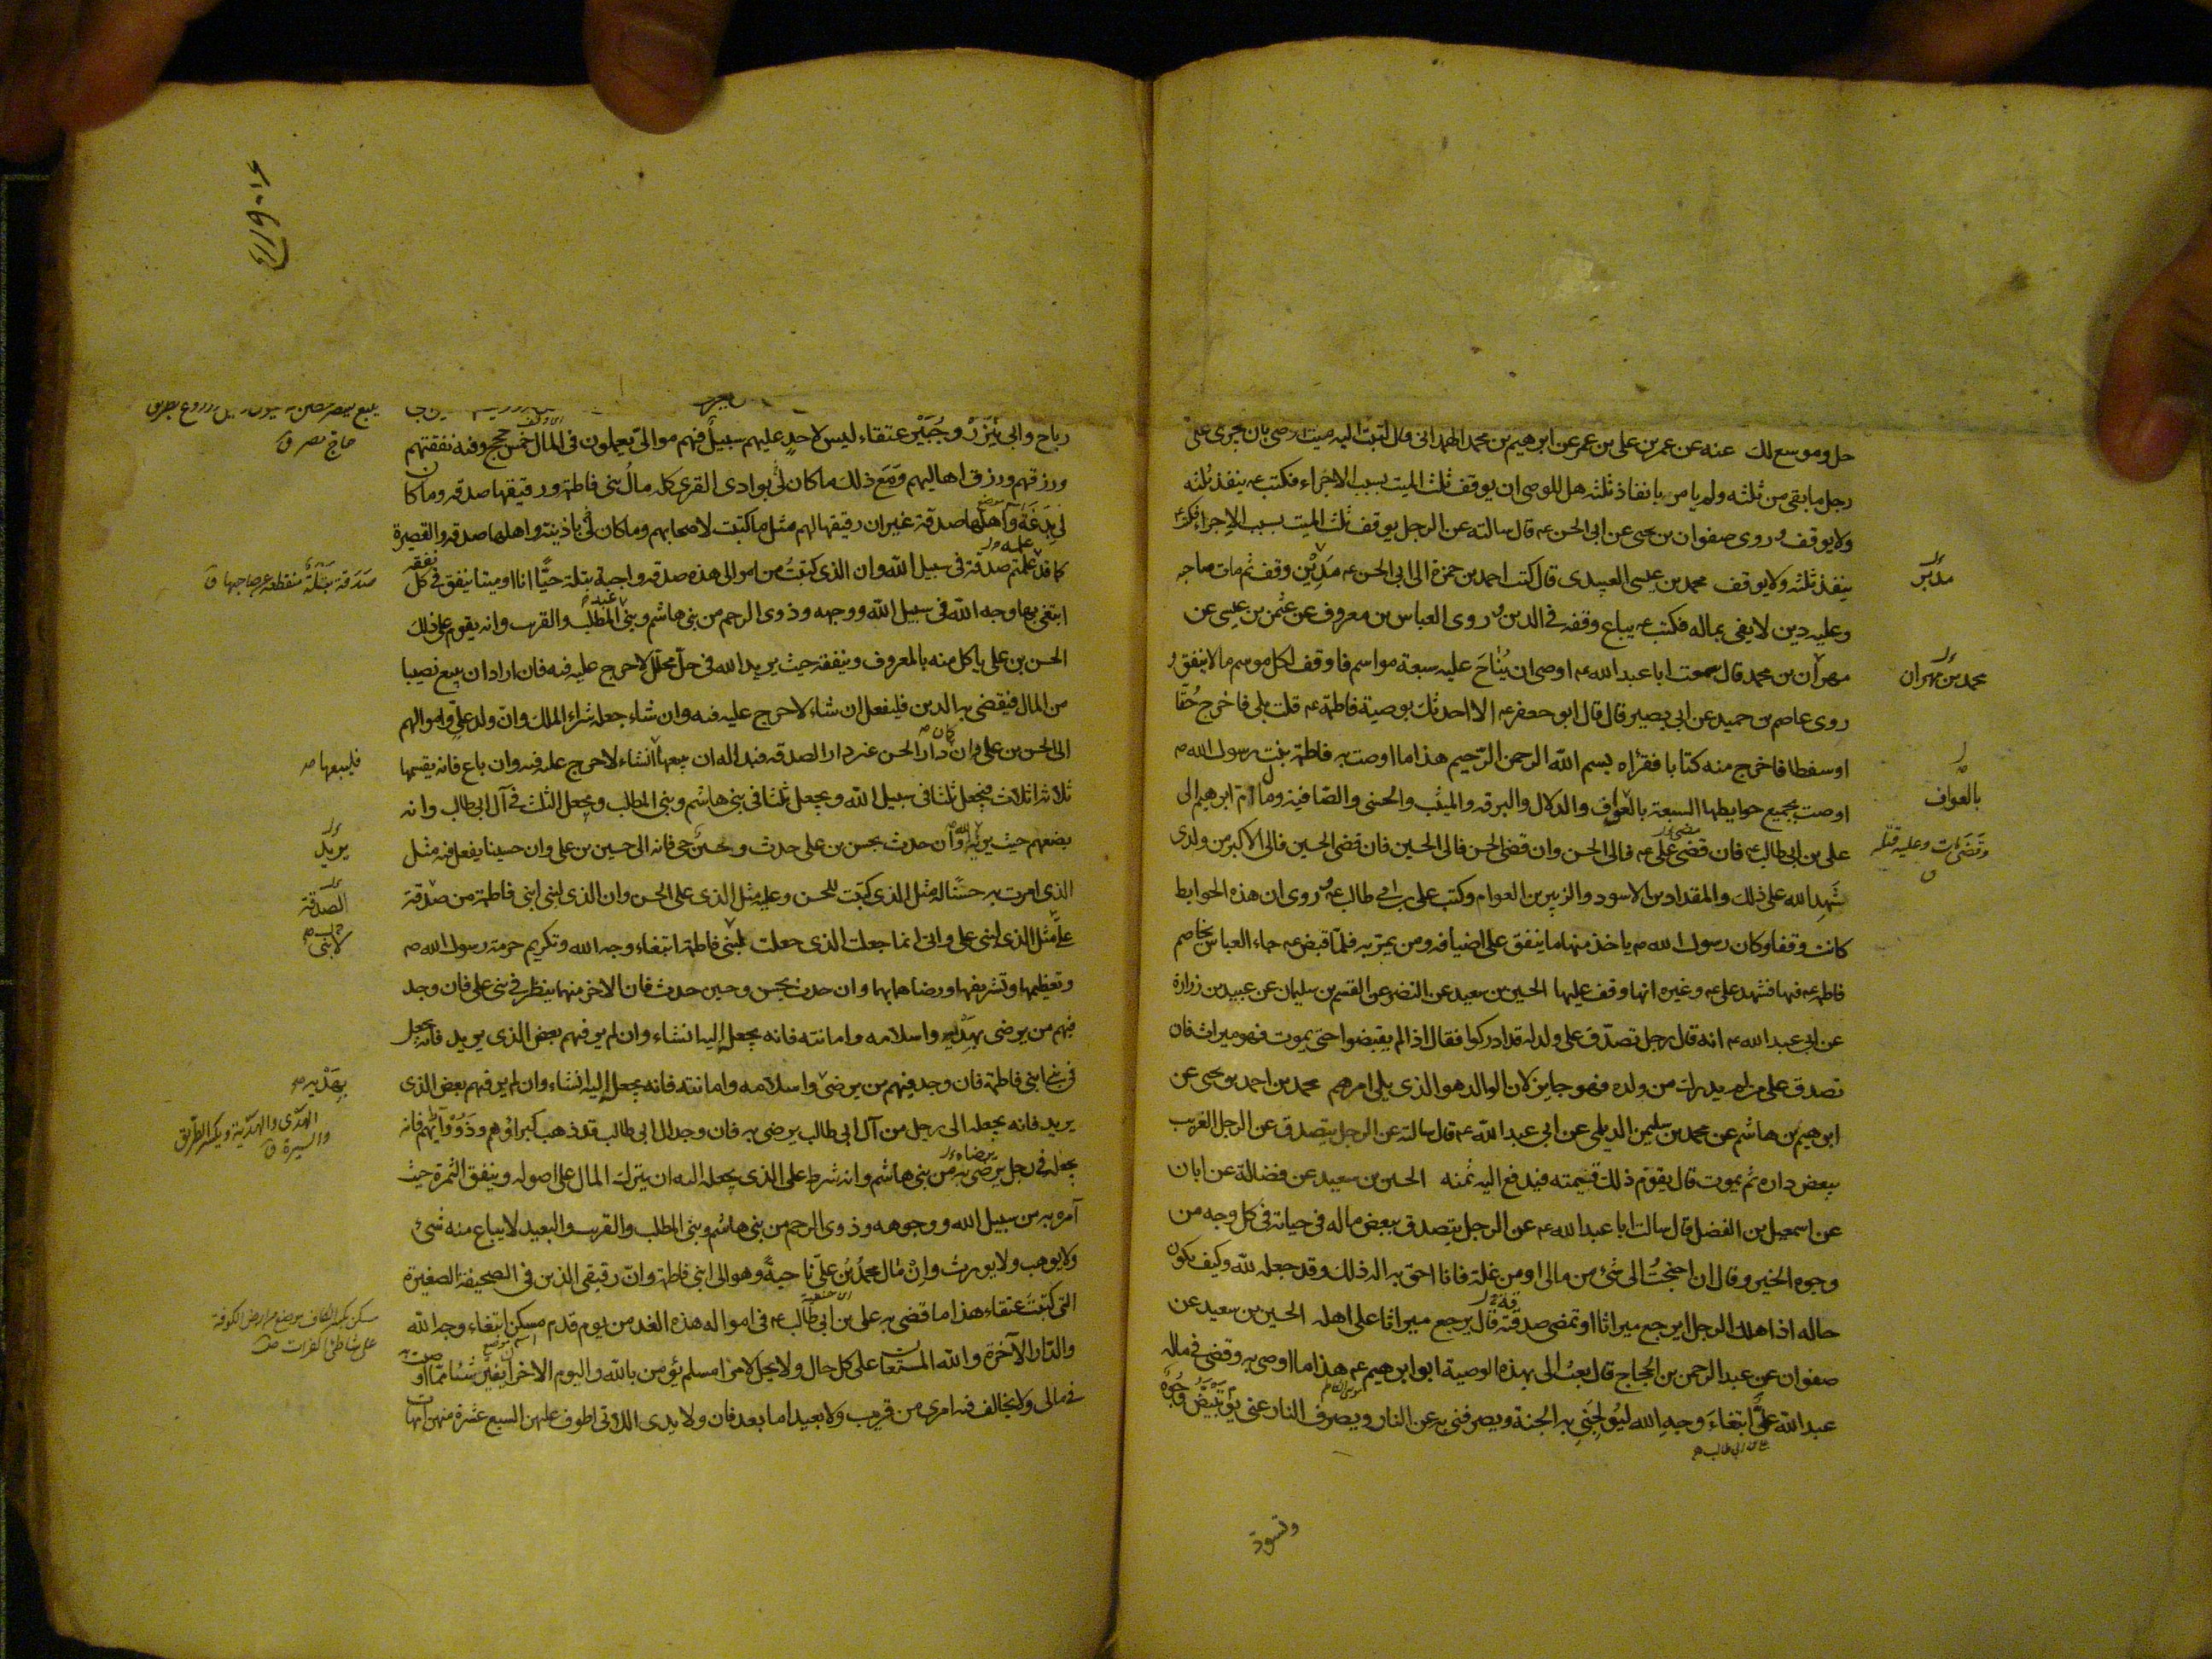 حل وموسع لك عنه عن عمر بن علي بن عمر عن ابرهيم بن محمد الهمداني قال كتبت اليه ميت اوصى بان يجرى على
رجل ما بقى من ثلثه ولم يامر بانفاذ ثلثه هل للوصى ان يوقف ثلث الميت بسبب الاجراء فكتب ع ينفذ ثلثه
ولا يوقف وروى صفوان بن يحيى عن ابى الحسن ع قال سالته عن الرجل يوقف ثلث الميت بسبب الاجراء فكتب ع
ينفذ ثلثه ولا يوقف محمد بن عيسى العبيدى قال كتب احمد بن حمزة الى ابى الحسن ع مدين وقف ثم مات صاحبه
وعليه دين لا يفى بماله فكتب ع يباع وقفه فى الدين وروى العباس بن معروف عن عثمن بن عيسى عن
مهران بن محمد قال سمعت ابا عبد الله ع اوصى ان يناح عليه سبعة مواسم فاوقف لكل موسم مالا ينفق و
روى عاصم بن حميد عن ابى بصير قال قال ابو جعفر ع الا احدثك بوصية فاطمة ع قلت بلى فاخرج حقا
او سفطا فاخرج منه كتابا فقرأه بسم الله الرحمن الرحيم هذا ما اوصت به فاطمة بنت رسول الله ص
اوصت بجميع حوايطها السبعة بالعواف والدلال والبرقة والميثب والحسنى والصافية ومال ام ابرهيم الى
على بن ابى طالب ع فان قضى على ع فالى الحسن وان قضى الحسن فالى الحسين فان قضى الحسين فالى الاكبر من ولدى
شهد الله على ذلك والمقداد بن الاسود والزبير بن العوام وكتب على بن ابى طالب ع وروى ان هذه الحوايط
كانت وقفا وكان رسول الله ص ياخذ منها ما ينفق على اضيافه ومن يمر به فلما قبض ع جاء العباس يخاصم
فاطمه ع فيها فشهد على ع وغيره انها وقف عليها الحسين بن سعيد عن النضر عن القسم بن سليمان عن عبيد بن زرارة
عن ابى عبد الله ع انه قال رجل تصدق على ولد له قد ادركوا فقال اذا لم يقبضوا حتى يموت فهو ميراث فان
تصدق على من لم يدرك من ولده فهو جايز لان الوالد هو الذى يلى امرهم محمد بن احمد بن يحيى عن
ابرهيم بن هاشم عن محمد بن سليمن الديلمى عن ابى عبد الله ع قال سالته عن الرجل يتصدق عن الرجل الغريب
ببعض داره ثم يموت قال يقوم ذلك قيمته فيدفع اليه ثمنه الحسين بن سعيد عن فضالة عن ابان
عن اسمعيل بن الفضل قال سالت ابا عبد الله ع عن الرجل يتصدق ببعض ماله فى حياته فى كل وجه من
وجوه الخير وقال ان احتجت الى شئ من مالى او من غلة فانا احق به اله ذلك وقد جعله لله وكيف يكون
حاله اذا هلك الرجل ايرجع ميراثا او تمضى صدقة قال يرجع ميراثا على اهله الحسين بن سعيد عن
صفوان عن عبد الرحمن بن الحجاج قال بعث الى بهذه الوصية ابو ابرهيم ع هذا ما اوصى به وقضى فى ماله
موسى الكاظم
عبد الله على ابتغاء وجه الله ليولجنى به الجنة ويصرفنى به عن النار ويصرف النار عنى يوم تبيض وجوه
على بن ابى طالب ع
وتسود
مدبر
محمد بن مهران
بالعواف
رباح وابى نيزر وجبير عتقاء ليس لاحد عليهم سبيل فهم موالى يعملون فى المال خمس حجج وفيه نفقتهم
ورزقهم ورزق اهاليهم ومع ذلك ما كان لى بوادى القرى كله مال بنى فاطمة ورقيقها صدقة وما كان
لى بدغة واهلها صدقة غير ان رقيقها لهم مثل ما كتبت لاصحابهم وما كان لى باذينة واهلها صدقة والقصيرة
كما قد علمتم صدقة فى سبيل الله وان الذى كتبت من اموالى هذه صدقة واجبة بتلة حيا انا او ميتا ينفق فى كل نفقة
ابتغى بها وجه الله فى سبيل الله ووجهه وذوى الرحم من بنى هاشم وبنى المطلب والقريب وانه يقوم على ذلك
الحسن بن على ياكل منه بالمعروف وينفقه حيث يريد الله فى حل محلل لا حرج عليه فيه فان اراد ان يبيع نصيبا
من المال فيقضى به الدين فليفعل ان شاء لا حرج عليه فيه وان شاء جعله شراء الملك وان ولد على واموالهم
الى الحسن بن على وان كان دار الحسن غير دار الصدقة فبدا له ان يبيعها انشاء لا حرج عليه فيه وان باع فانه يقسمها
ثلاثة اثلاث فيجعل ثلثا فى سبيل الله ويجعل ثلثا فى بنى هاشم وبنى المطلب ويجعل الثلث فى آل ابى طالب وانه
يضعهم حيث يريه الله وان حدث بحسن بن على حدث وحسين حى فانه الى حسين بن على وان حسينا يفعل فيه مثل
الذى امرت به حسنا له مثل الذى كتبت للحسن وعليه مثل الذى على الحسن وان الذى لبنى ابنى فاطمة من صدقة
على مثل الذى لبنى على وانى انما جعلت الذى جعلت لبنى فاطمة ابتغاء وجه الله وتكريم حرمة رسول الله ص
وتعظيمها وتشريفها ورضاهما بها وان حدث بحسن وحسين حدث فان الاخر منهما ينظر فى بنى على فان وجد
فيهم من يرضى بهديه واسلامه وامانته فانه يجعله اليه انشاء وان لم ير فيهم بعض الذى يريد فانه يجعل
فى بنى ابنى فاطمة فان وجد فيهم من يرضى واسلامه وامانته فانه يجعل اليه انشاء وان لم ير فيهم بعض الذى
يريد فانه يجعله الى رجل من آل ابى طالب يرضى به فان وجد آل ابى طالب قد ذهب كبراؤهم وذوو آرائهم فانه
يجعله فى رجل يرضى به من بنى هاشم وانه شرط على الذى يجعله اليه ان يترك المال على اصوله وينفق الثمرة حيث
آمره به من سبيل الله ووجوهه وذوى الرحم من بنى هاشم وبنى المطلب والقريب والبعيد لا يباع منه شىء
ولا يوهب ولا يورث وان مال محمد بن على ناحية وهو الى ابنى فاطمة وان رقيقى الذين فى الصحيفة الصغيرة
التى كتبت عتقاء هذا ما قضى به على بن ابى طالب ع فى امواله هذه الغد من يوم قدم مسكن ابتغاء وجه الله
والدار الآخرة والله المستعان على كل حال ولا يحل لامرئ مسلم يؤمن بالله واليوم الاخر ان يغير شيئا مما اوصيت به
فى مالى ولا يخالف فيه امرى من قريب ولا بعيد اما بعد فان ولايدى اللاتى اطوف عليهن السبع عشرة منهن امهات
حاج مصر ق
صدقة بتلة منقطعة عن صاحبها ق
فليبعها
يريد
الصدقة
لابنى
بهديه
الهدى والهدية ويكسر الطريق
والسيرة ق
مسكن بكسر الكاف موضع من ارض الكوفة
على شاطئ الفرات